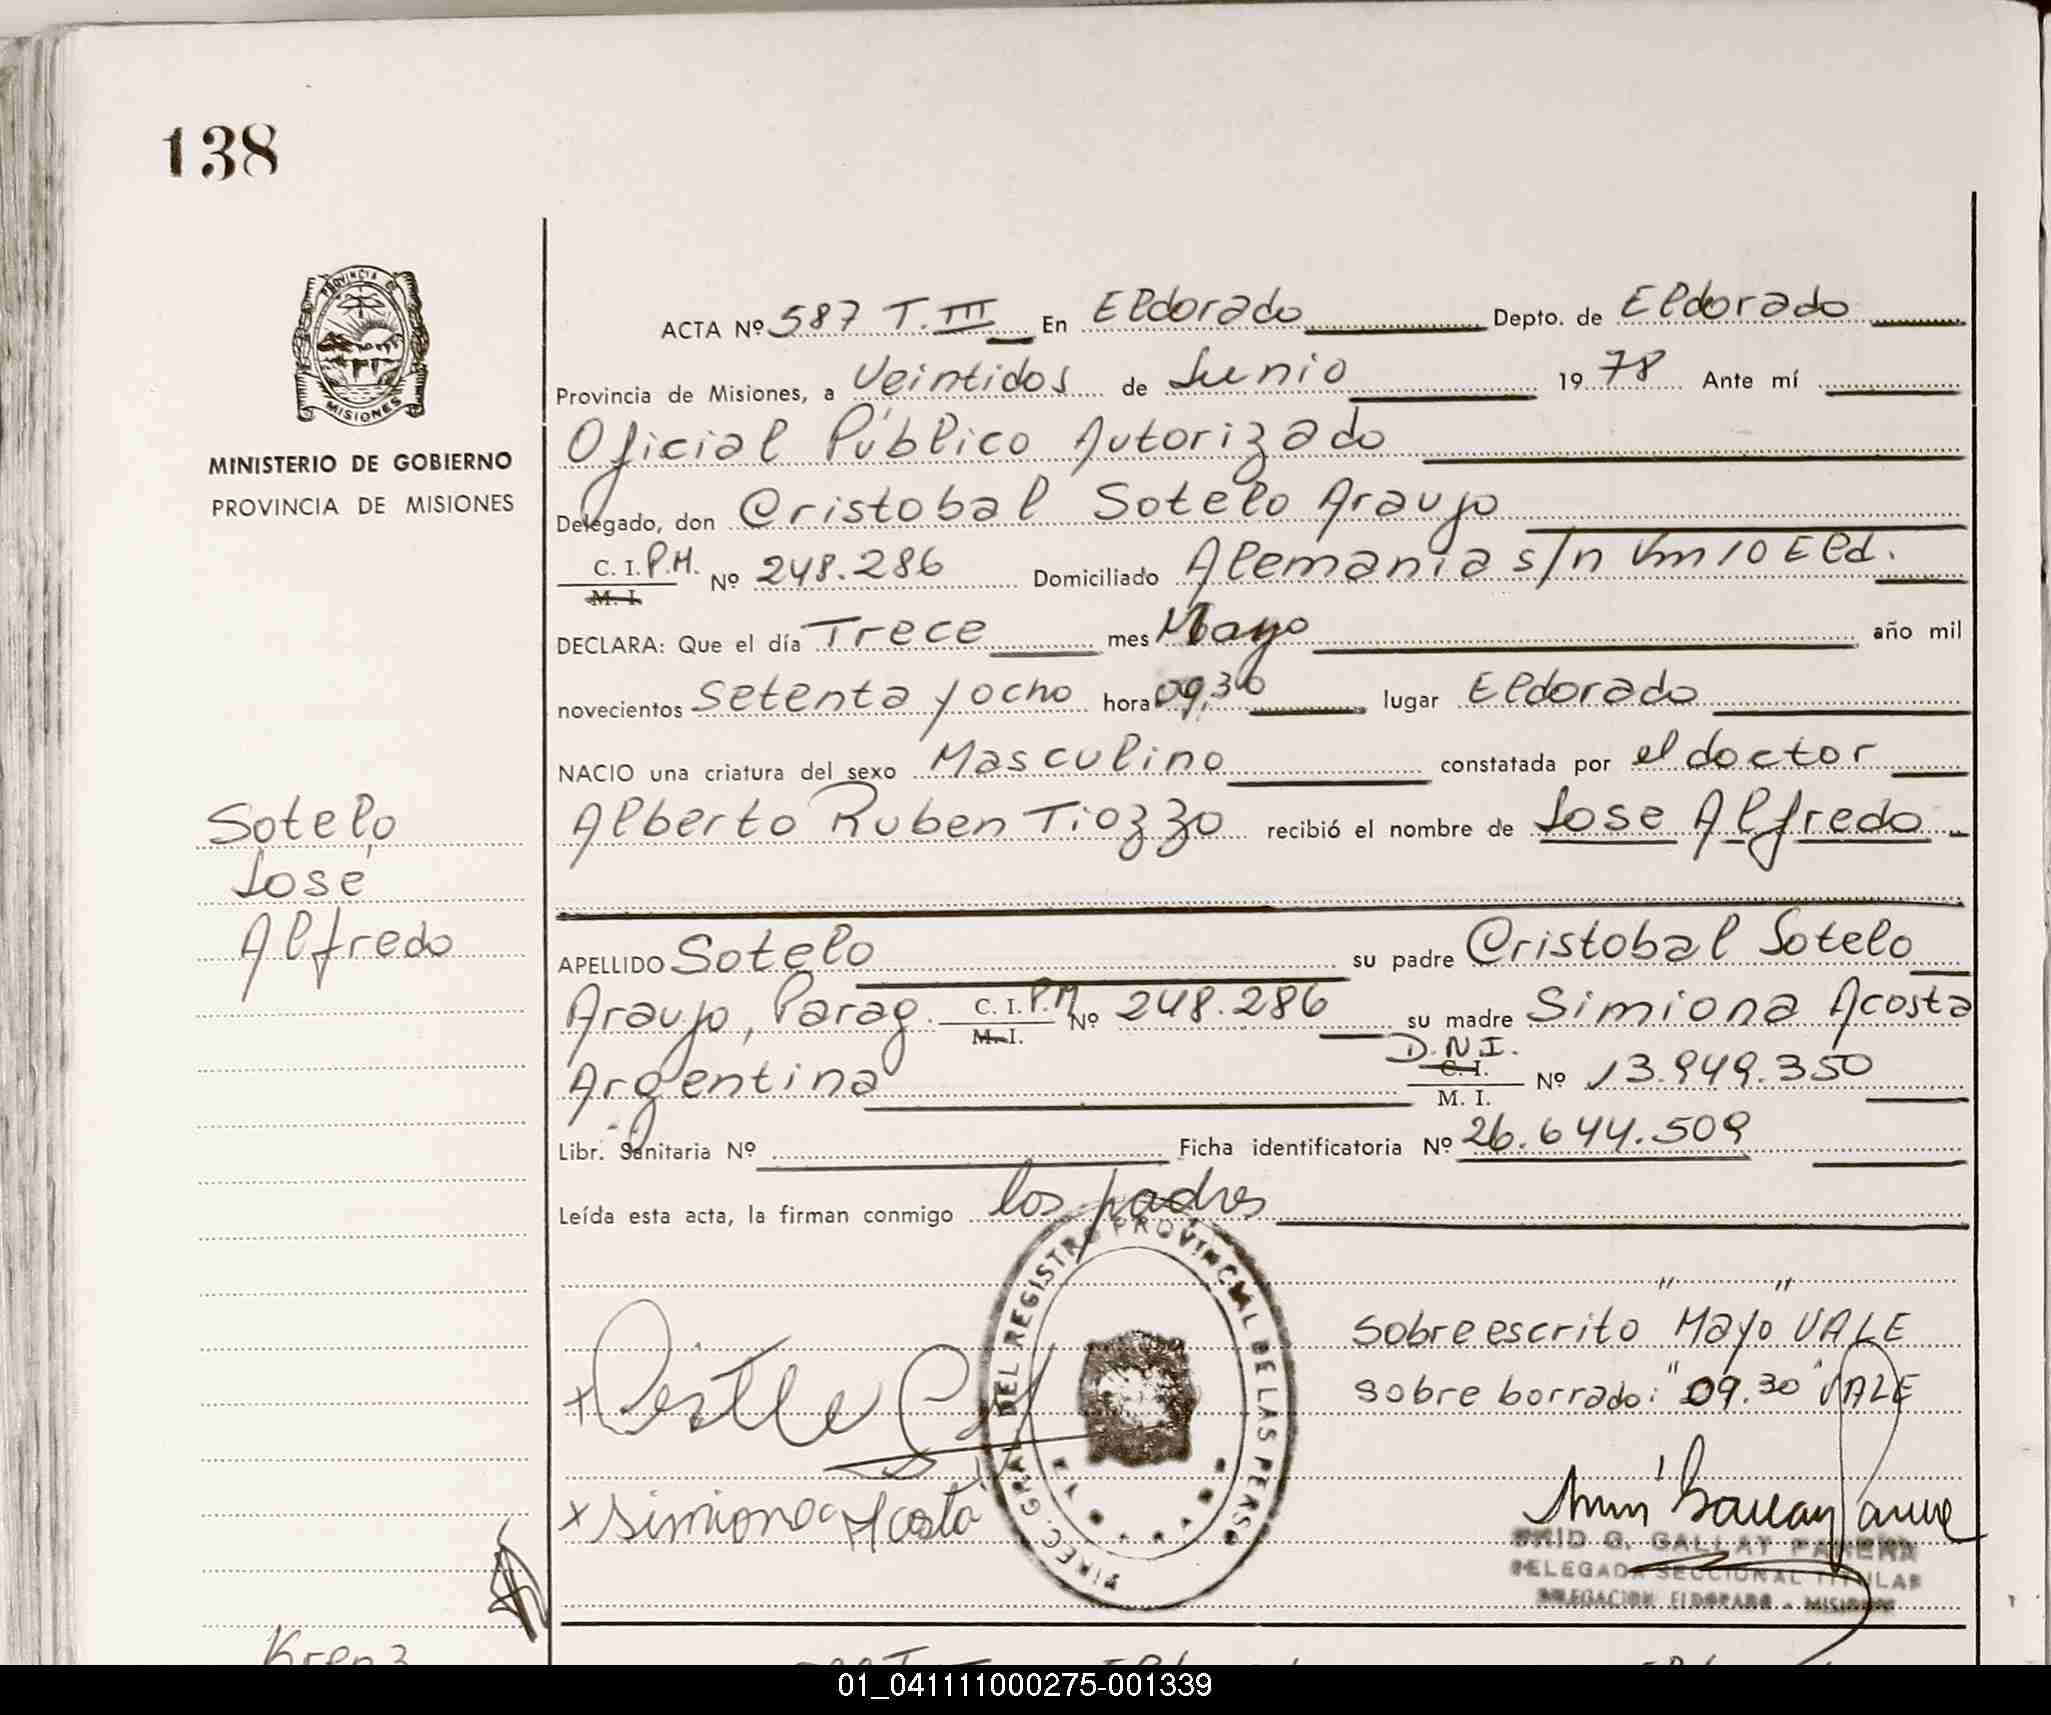 138
PROVINCIA DE
MISIONES
MINISTERIO DE GOBIERNO
PROVINCIA DE MISIONES
ACTA Nº 587 T. III En Eldorado Depto. de Eldorado
Provincia de Misiones, a Veintidos de Junio 1978 Ante mí
Oficial Público Autorizado
Delegado, don Cristobal Sotelo Araujo
C. I. P.M.
M. I. Nº 248.286 Domiciliado Alemania s/n Km 10 Eld.
DECLARA: Que el día Trece mes Mayo año mil
novecientos Setenta y ocho hora 09,30 lugar Eldorado
NACIO una criatura del sexo Masculino constatada por el doctor
Alberto Ruben Tiozzo recibió el nombre de Jose Alfredo
Sotelo
José
Alfredo
APELLIDO Sotelo su padre Cristobal Sotelo
Araujo, Parag. C. I. P.M. Nº 248.286 su madre Simiona Acosta
M. I.
D.N.I.
Argentina C. I. Nº 13.949.350
M. I.
Libr. Sanitaria Nº Ficha identificatoria Nº 26.644.509
Leída esta acta, la firman conmigo los padres
Sobreescrito "Mayo" VALE
sobre borrado: "09.30" VALE
x
x Simiona Acosta
DIREC. GRAL. DEL REGISTRO PROVINCIAL DE LAS PERSO
G. GALLAY PARERA
DELEGADA SECCIONAL TITULAR
DELEGACION ELDORADO - MISIONES
Krenz
01_041111000275-001339